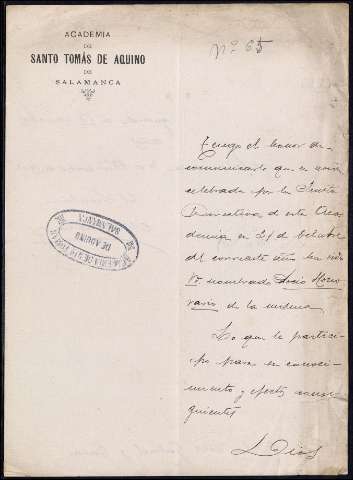 ACADEMIA
DE
SANTO TOMÁS DE AQUINO
DE
SALAMANCA
Nº 65
Tengo el honor de
comunicarle que en sesión
celebrada por la Junta
Directiva de esta Aca
demia en 21 de Octubre
del corriente año ha sido
V. nombrado Socio Hono
rario de la misma
Lo que le partici
po para su conoci
miento y efectos consi
guientes
ACADEMIA DE SANTO TOMAS
DE AQUINO
SALAMANCA